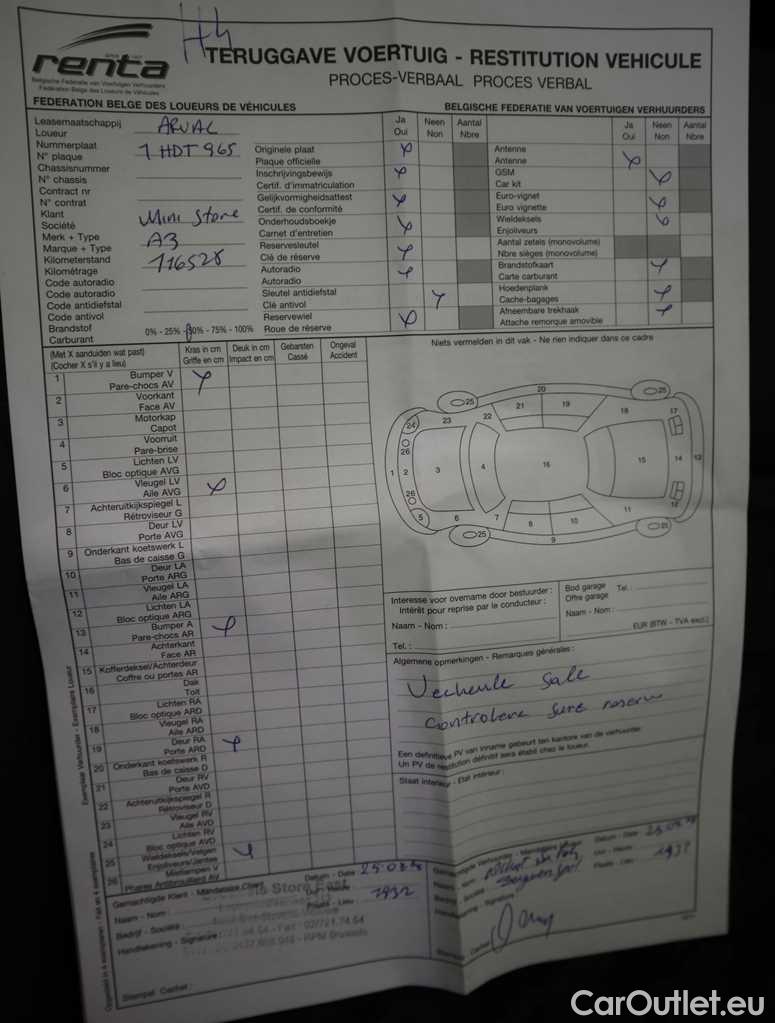 H4
renta
TERUGGAVE VOERTUIG - RESTITUTION VEHICULE
PROCES-VERBAAL PROCES VERBAL
Belgische Federatie van Voertuigen Verhuurders
Fédération Belge des Loueurs de Véhicules
FEDERATION BELGE DES LOUEURS DE VÉHICULES
BELGISCHE FEDERATIE VAN VOERTUIGEN VERHUURDERS
Leasemaatschappij
Loueur
ARVAL
Nummerplaat
N° plaque
1 HDT 965
Chassisnummer
N° chassis
Contract nr
N° contrat
Klant
Société
Mini Store
Merk + Type
Marque + Type
A3
Kilometerstand
Kilométrage
116528
Code autoradio
Code autoradio
Code antidiefstal
Code antivol
Brandstof
Carburant
0% - 25% - 50% - 75% - 100%
Ja
Oui
Neen
Non
Aantal
Nbre
Originele plaat
Plaque officielle
Inschrijvingsbewijs
Certif. d'immatriculation
Gelijkvormigheidsattest
Certif. de conformité
Onderhoudsboekje
Carnet d'entretien
Reservesleutel
Clé de réserve
Autoradio
Autoradio
Sleutel antidiefstal
Clé antivol
Reservewiel
Roue de réserve
Ja
Oui
Neen
Non
Aantal
Nbre
Antenne
Antenne
GSM
Car kit
Euro-vignet
Euro vignette
Wieldeksels
Enjoliveurs
Aantal zetels (monovolume)
Nbre sièges (monovolume)
Brandstofkaart
Carte carburant
Hoedenplank
Cache-bagages
Afneembare trekhaak
Attache remorque amovible
(Met X aanduiden wat past)
(Cocher X s'il y a lieu)
Kras in cm
Griffe en cm
Deuk in cm
Impact en cm
Gebarsten
Cassé
Ongeval
Accident
1 Bumper V
Pare-chocs AV
2 Voorkant
Face AV
3 Motorkap
Capot
4 Voorruit
Pare-brise
5 Lichten LV
Bloc optique AVG
6 Vleugel LV
Aile AVG
7 Achteruitkijkspiegel L
Rétroviseur G
8 Deur LV
Porte AVG
9 Onderkant koetswerk L
Bas de caisse G
10 Deur LA
Porte ARG
11 Vleugel LA
Aile ARG
12 Lichten LA
Bloc optique ARG
13 Bumper A
Pare-chocs AR
14 Achterkant
Face AR
15 Kofferdeksel/Achterdeur
Coffre ou portes AR
16 Dak
Toit
17 Lichten RA
Bloc optique ARD
18 Vleugel RA
Aile ARD
19 Deur RA
Porte ARD
20 Onderkant koetswerk R
Bas de caisse D
21 Deur RV
Porte AVD
22 Achteruitkijkspiegel R
Rétroviseur D
23 Vleugel RV
Aile AVD
24 Lichten RV
Bloc optique AVD
25 Wieldeksels/Velgen
Enjoliveurs/Jantes
26 Mistlampen V
Phares Antibrouillard AV
Niets vermelden in dit vak - Ne rien indiquer dans ce cadre
20
25
25
24
23
22
21
19
18
17
26
1
2
3
4
16
15
14
13
26
5
6
7
8
10
11
12
25
9
25
Interesse voor overname door bestuurder :
Intérêt pour reprise par le conducteur :
Naam - Nom :
Tel. :
Bod garage
Offre garage
Tel :
Naam - Nom :
EUR (BTW - TVA excl.)
Algemene opmerkingen - Remarques générales :
Vecheule sale
Controlere sure reserve
Een definitieve PV van inname gebeurt ten kantore van de verhuurder.
Un PV de restitution définitif sera établi chez le loueur.
Staat interieur - Etat intérieur :
Exemplaar Verhuurder - Exemplaire Loueur
Gemachtigde Klant - Mandataire Client
Naam - Nom :
Bedrijf - Société :
Handtekening - Signature :
Stempel Cachet :
Datum - Date :
Uur - Heure :
Plaats - Lieu :
1932
Store East
RPM Brussels
Gemachtigde Verhuurder - Mandataire loueur
Naam - Nom :
Bedrijf - Société :
Handtekening - Signature :
Datum - Date :
Uur - Heure :
Plaats - Lieu :
1932
CarOutlet.eu